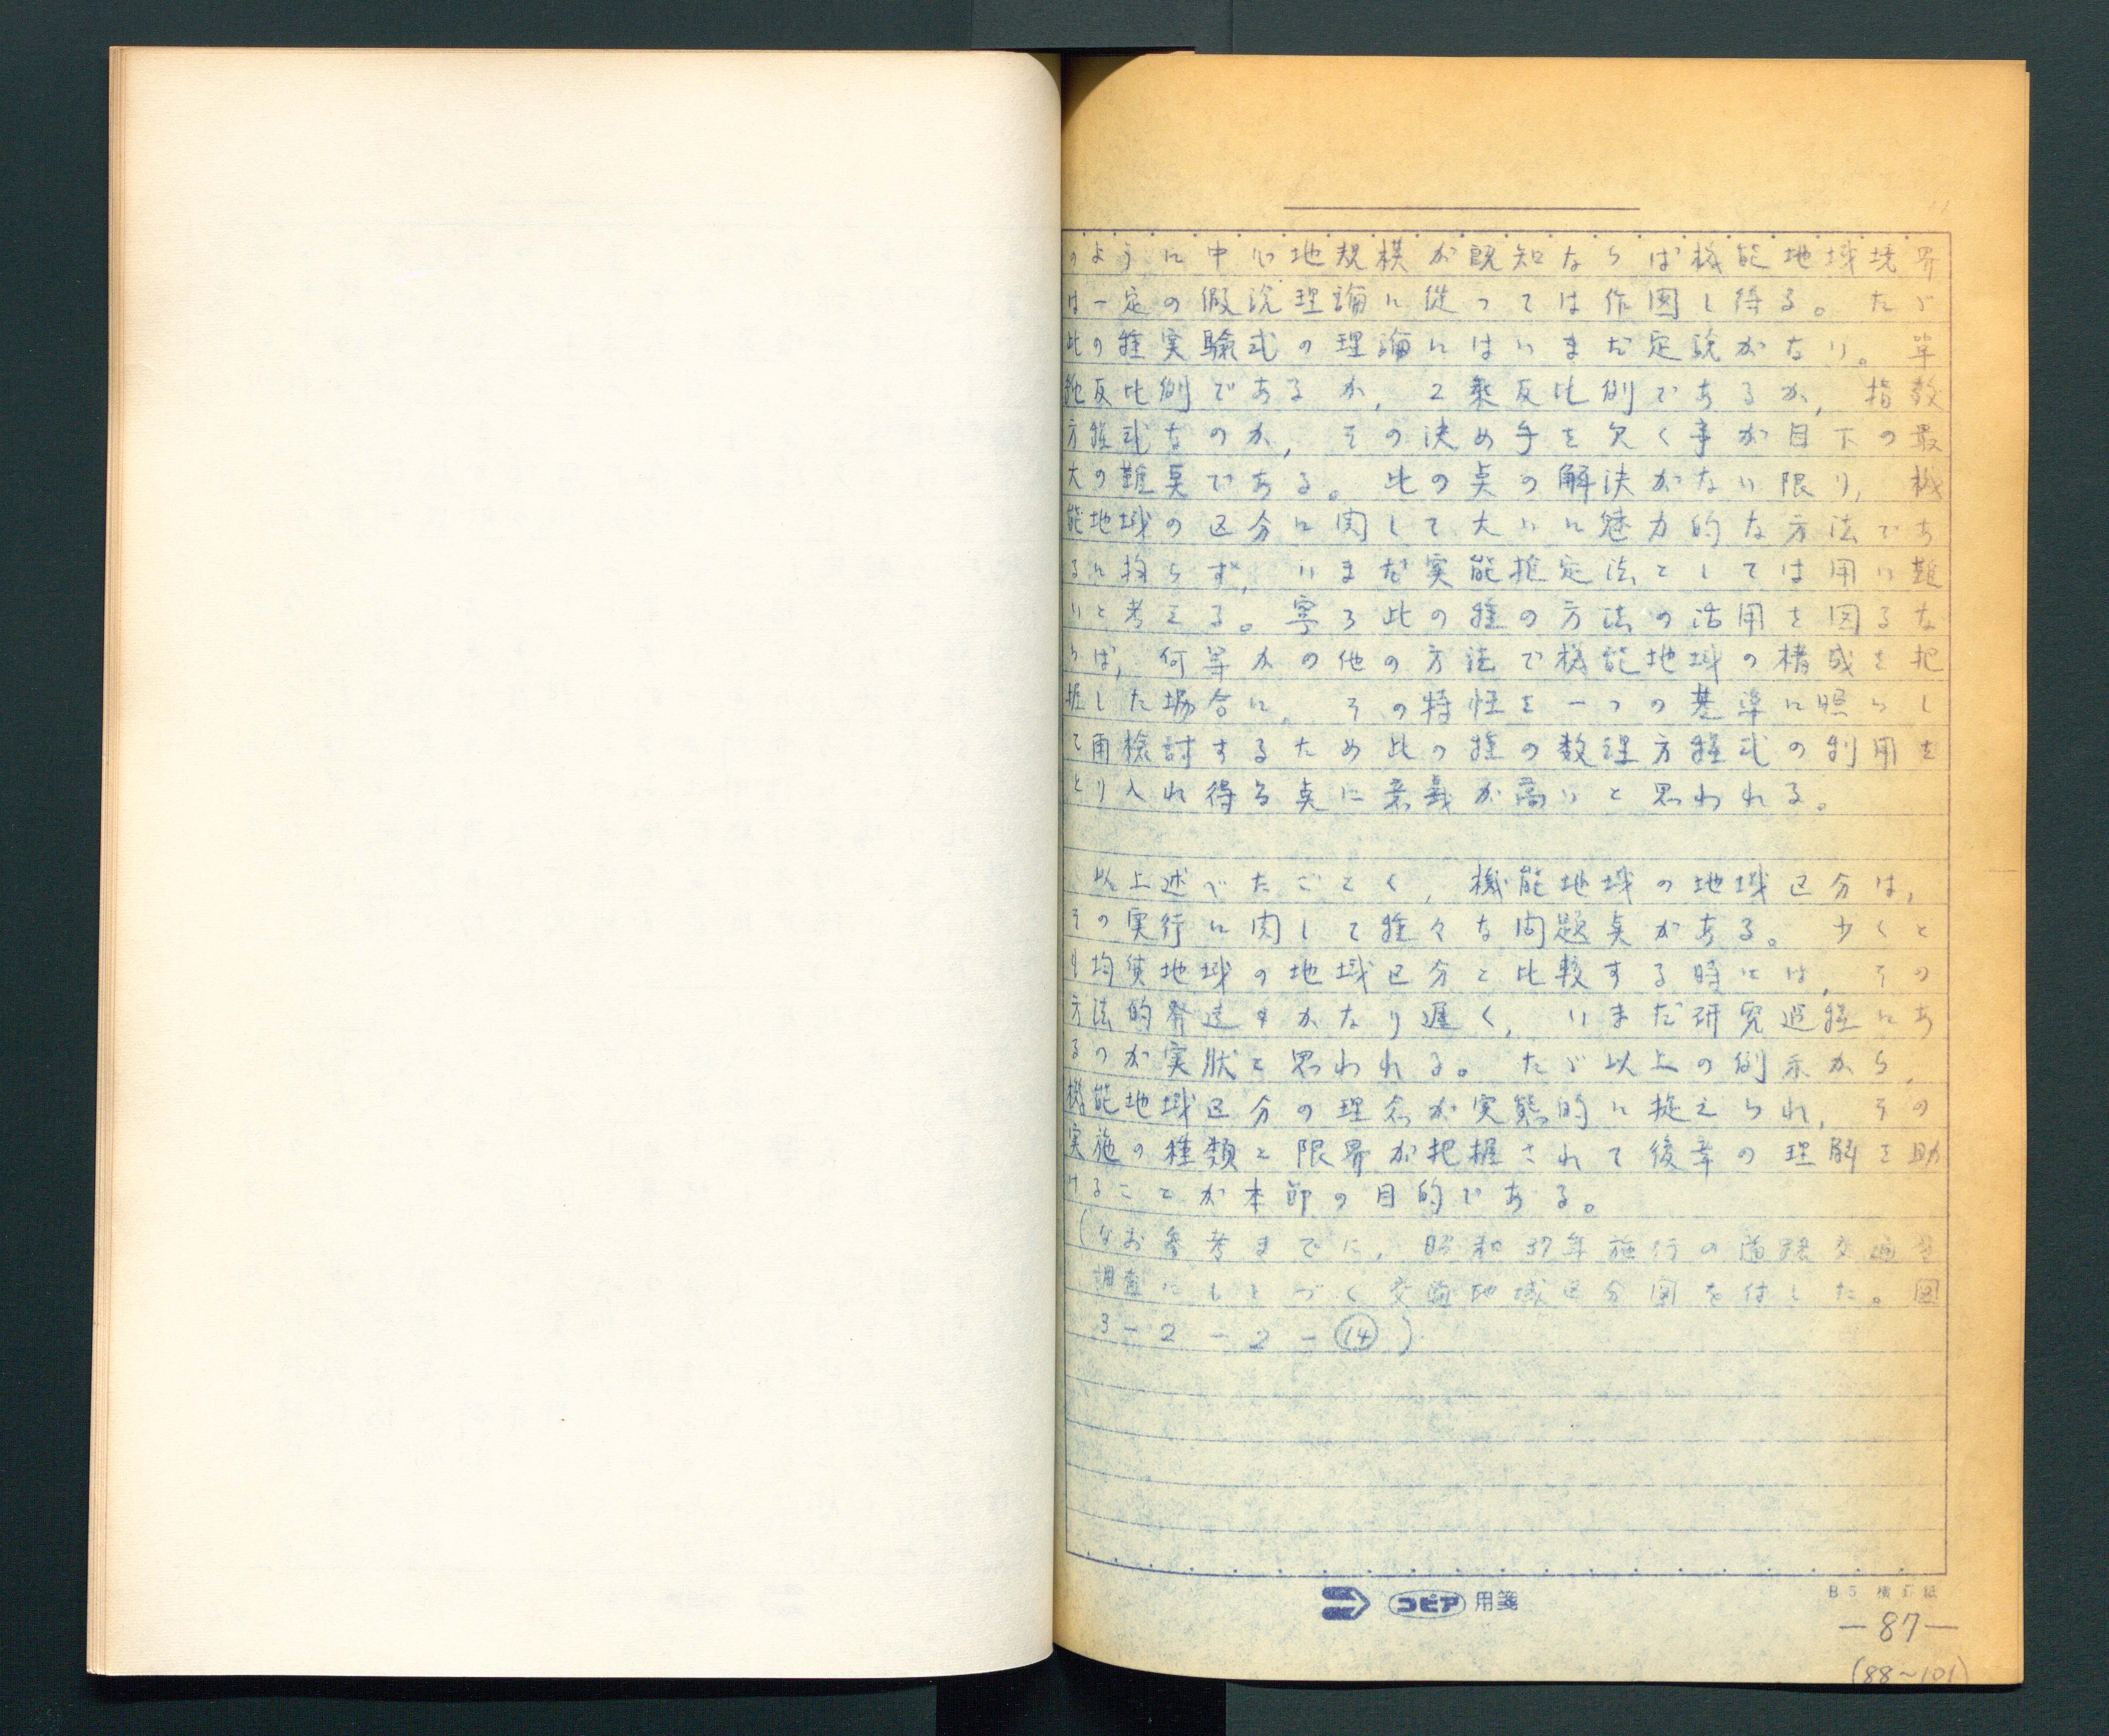 のように中心地規模が既知ならば機能地域境界
は一定の假説理論に従っては作図し得る。たゞ
此の種実験式の理論にはいまだ定説がない。単
純反比例であるか,2乗反比例であるか,指数
方程式なのか,その決め手を欠く事が目下の最
大の難点である。此の点の解決がない限り,機
能地域の区分に関して大いに魅力的な方法であ
るに拘らず,いまだ実態推定法としては用い難
いと考える。寧ろ此の種の方法の活用を図るな
らば,何等かの他の方法で機能地域の構成を把
握した場合に。その特性を一つの基準に照らし
て再検討するため此の種の数理方程式の利用を
とり入れ得る点に意義が高いと思われる。
以上述べたごとく,機能地域の地域区分は,
その実行に関して種々な問題点がある。少くと
も均質地域の地域区分と比較する時には,その
方法的発達もかなり遅く,いまだ研究過程にあ
るのが実状と思われる。たゞ以上の例示から,
機能地域区分の理念が実態的に捉えられ,その
実施の種類と限界が把握されて後章の理解を助
けることが本節の目的である。
(なお参考までに,昭和37年施行の道路交通量
調査にもとづく交通地域区分図を付した。図
3-2-2-⑭)
コピア 用箋
B5 横罫紙
-87-
(88~101)